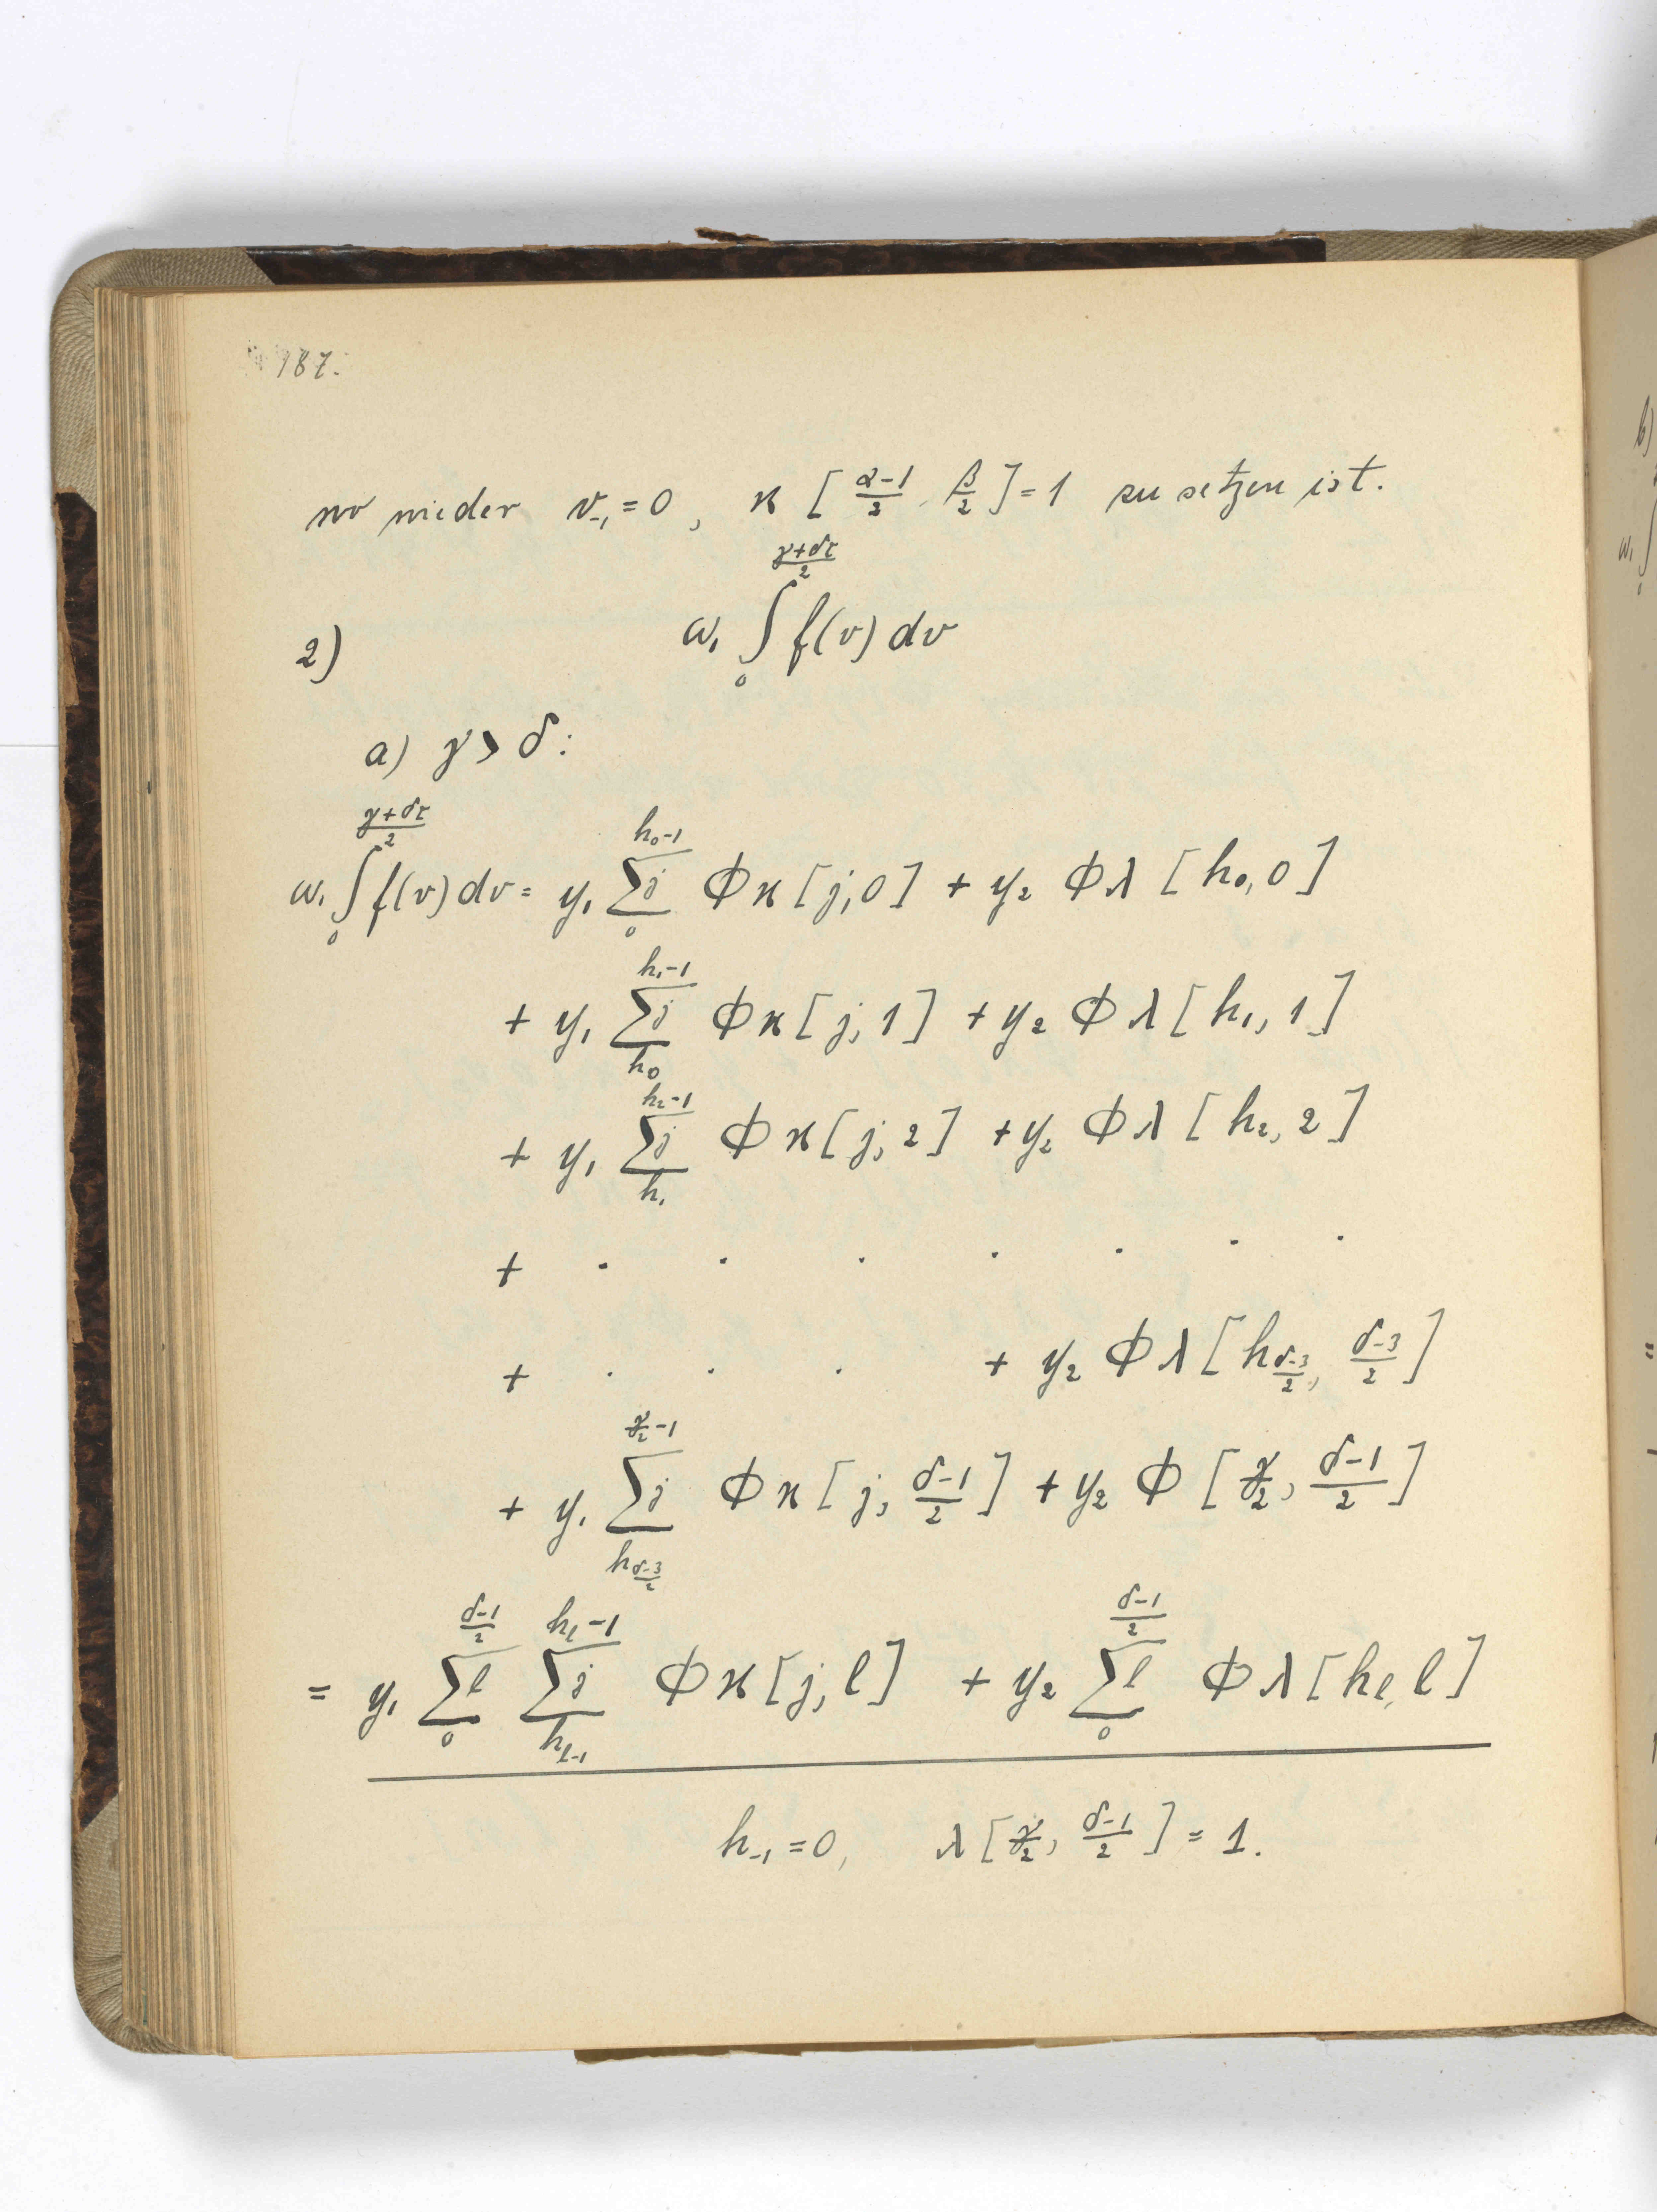 187.
wo wieder v₋₁ = 0, ϰ [ (α-1)/2, β/2 ] = 1 zu setzen ist.
2) ω₁ ∫₀^{(γ+δτ)/2} f(v) dv
a) γ > δ:
ω₁ ∫₀^{(γ+δτ)/2} f(v) dv = y₁ Σj_{0}^{h₀-1} Φϰ[j,0] + y₂ Φλ[h₀,0]
+ y₁ Σj_{h₀}^{h₁-1} Φϰ[j,1] + y₂ Φλ[h₁,1]
+ y₁ Σj_{h₁}^{h₂-1} Φϰ[j,2] + y₂ Φλ[h₂,2]
+ . . . . . . .
+ . . . + y₂ Φλ[h_{(δ-3)/2}, (δ-3)/2]
+ y₁ Σj_{h_{(δ-3)/2}}^{γ/2-1} Φϰ[j, (δ-1)/2] + y₂ Φ[γ/2, (δ-1)/2]
= y₁ Σl_{0}^{(δ-1)/2} Σj_{h_{l-1}}^{h_l-1} Φϰ[j,l] + y₂ Σl_{0}^{(δ-1)/2} Φλ[h_l,l]
h₋₁ = 0, λ[γ/2, (δ-1)/2] = 1.
b)
ω₁ ∫
0
=